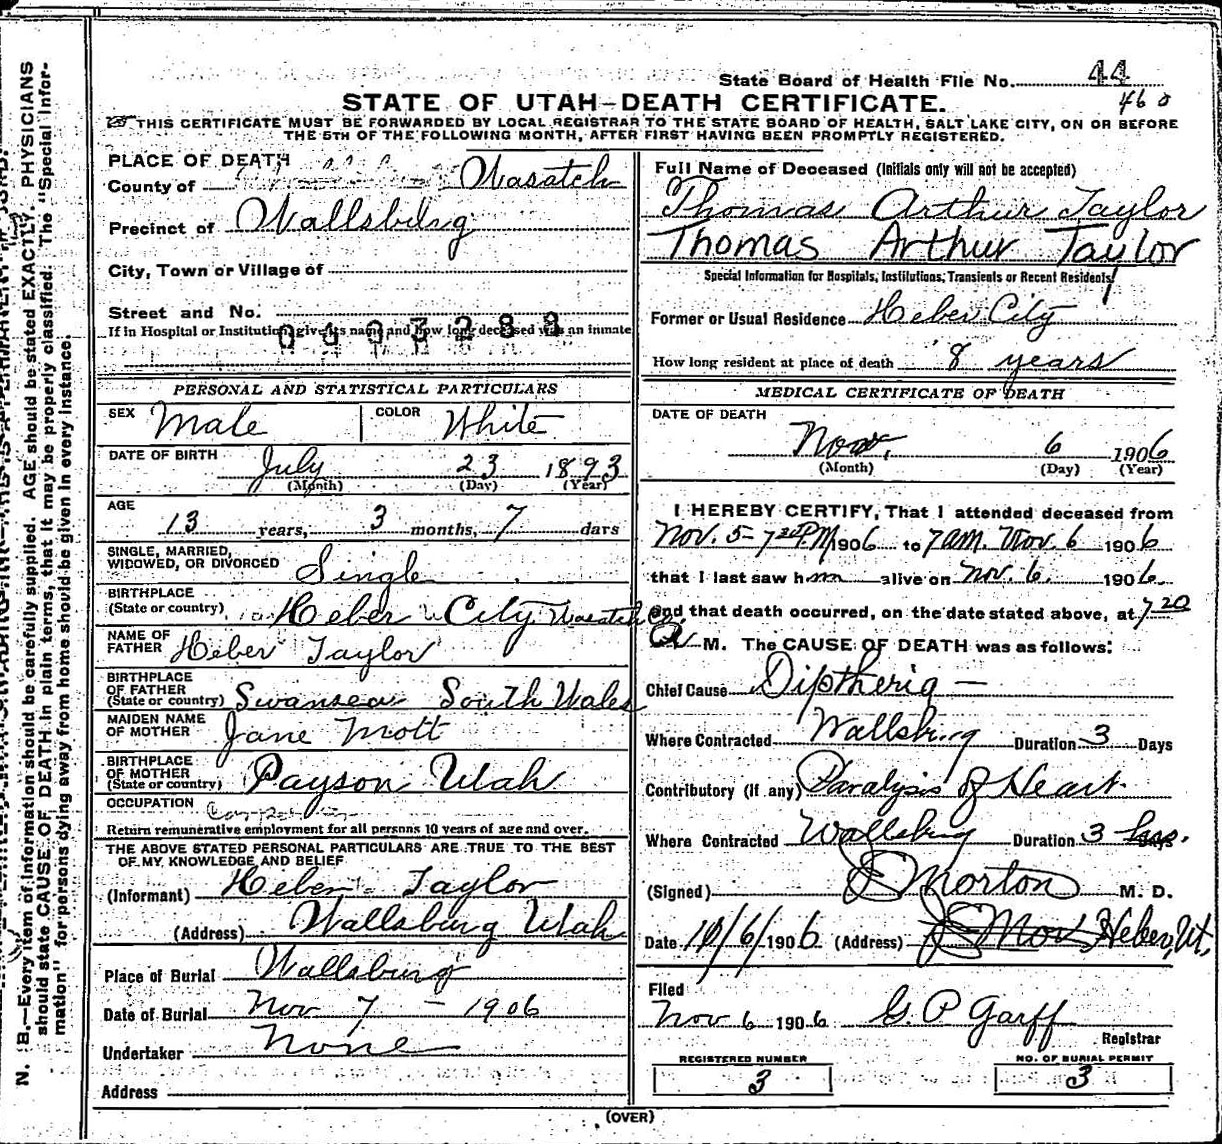 State Board of Health File No. 44
460
STATE OF UTAH—DEATH CERTIFICATE.
THIS CERTIFICATE MUST BE FORWARDED BY LOCAL REGISTRAR TO THE STATE BOARD OF HEALTH, SALT LAKE CITY, ON OR BEFORE
THE 5TH OF THE FOLLOWING MONTH, AFTER FIRST HAVING BEEN PROMPTLY REGISTERED.
PLACE OF DEATH
County of Wasatch
Precinct of Wallsburg
City, Town or Village of
Street and No.
If in Hospital or Institution, give its name and how long deceased was an inmate
0403288
PERSONAL AND STATISTICAL PARTICULARS
SEX Male COLOR White
DATE OF BIRTH July 23 1893
(Month) (Day) (Year)
AGE 13 years, 3 months, 7 days
SINGLE, MARRIED,
WIDOWED, OR DIVORCED Single
BIRTHPLACE
(State or country) Heber City Wasatch Co.
NAME OF
FATHER Heber Taylor
BIRTHPLACE
OF FATHER
(State or country) Swansea South Wales
MAIDEN NAME
OF MOTHER Jane Mott
BIRTHPLACE
OF MOTHER
(State or country) Payson Utah
OCCUPATION
Return remunerative employment for all persons 10 years of age and over.
THE ABOVE STATED PERSONAL PARTICULARS ARE TRUE TO THE BEST
OF MY KNOWLEDGE AND BELIEF
(Informant) Heber Taylor
(Address) Wallsburg Utah
Place of Burial Wallsburg
Date of Burial Nov 7 - 1906
Undertaker None
Address
Full Name of Deceased (Initials only will not be accepted)
Thomas Arthur Taylor
Thomas Arthur Taylor
Special Information for Hospitals, Institutions, Transients or Recent Residents
Former or Usual Residence Heber City
How long resident at place of death 8 years
MEDICAL CERTIFICATE OF DEATH
DATE OF DEATH
Nov. 6 1906
(Month) (Day) (Year)
I HEREBY CERTIFY, That I attended deceased from
Nov. 5 - 7 30 PM 1906 to 7 am. Nov. 6 1906
that I last saw him alive on Nov. 6. 1906
and that death occurred, on the date stated above, at 7 20
A M. The CAUSE OF DEATH was as follows:
Chief Cause Diptheria —
Where Contracted Wallsburg Duration 3 Days
Contributory (If any) Paralysis of Heart.
Where Contracted Wallsburg Duration 3 hrs.
(Signed) Morton M. D.
Date 10/6/1906 (Address) Heber, Ut.
Filed
Nov 6 1906 G. P. Garff
Registrar
REGISTERED NUMBER
3
NO. OF BURIAL PERMIT
3
(OVER)
N. B.—Every item of information should be carefully supplied. AGE should be stated EXACTLY. PHYSICIANS
should state CAUSE OF DEATH in plain terms, that it may be properly classified. The "Special Infor-
mation" for persons dying away from home should be given in every instance.